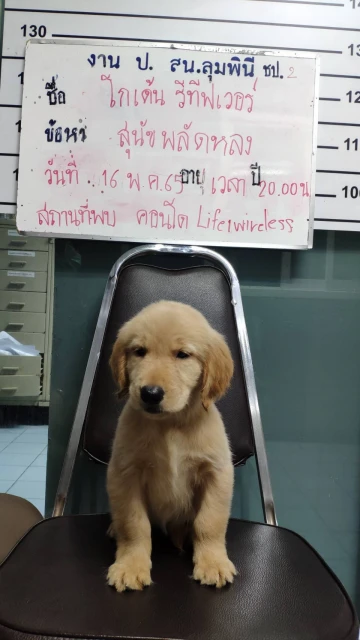 130
งาน ป. สน.ลุมพินี ชป. 2
ชื่อ โกเด้น รีทีฟเวอร์
ข้อหา สุนัขพลัดหลง
วันที่ 16 พ.ค.65 อายุ เวลา ปี 20.00น
สถานที่พบ คอนโด Life1wireless
120
110
100